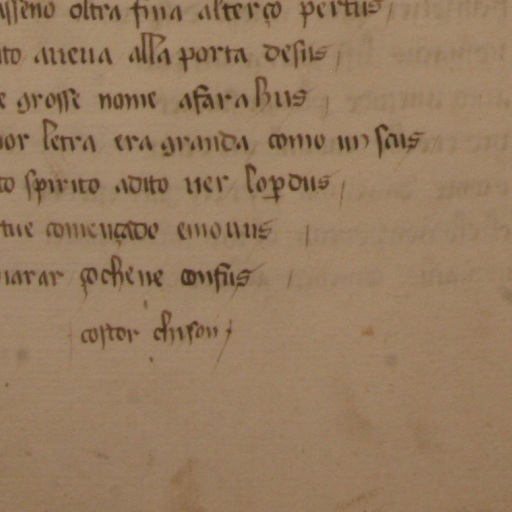 asseno oltra fina alterço pertus
ito aueua alla porta desus
e grosse nome afarabus
or letra era granda como un scus
to spirito adito uer lo perdus
tue començade emouus
narar çochene confus
costor chison